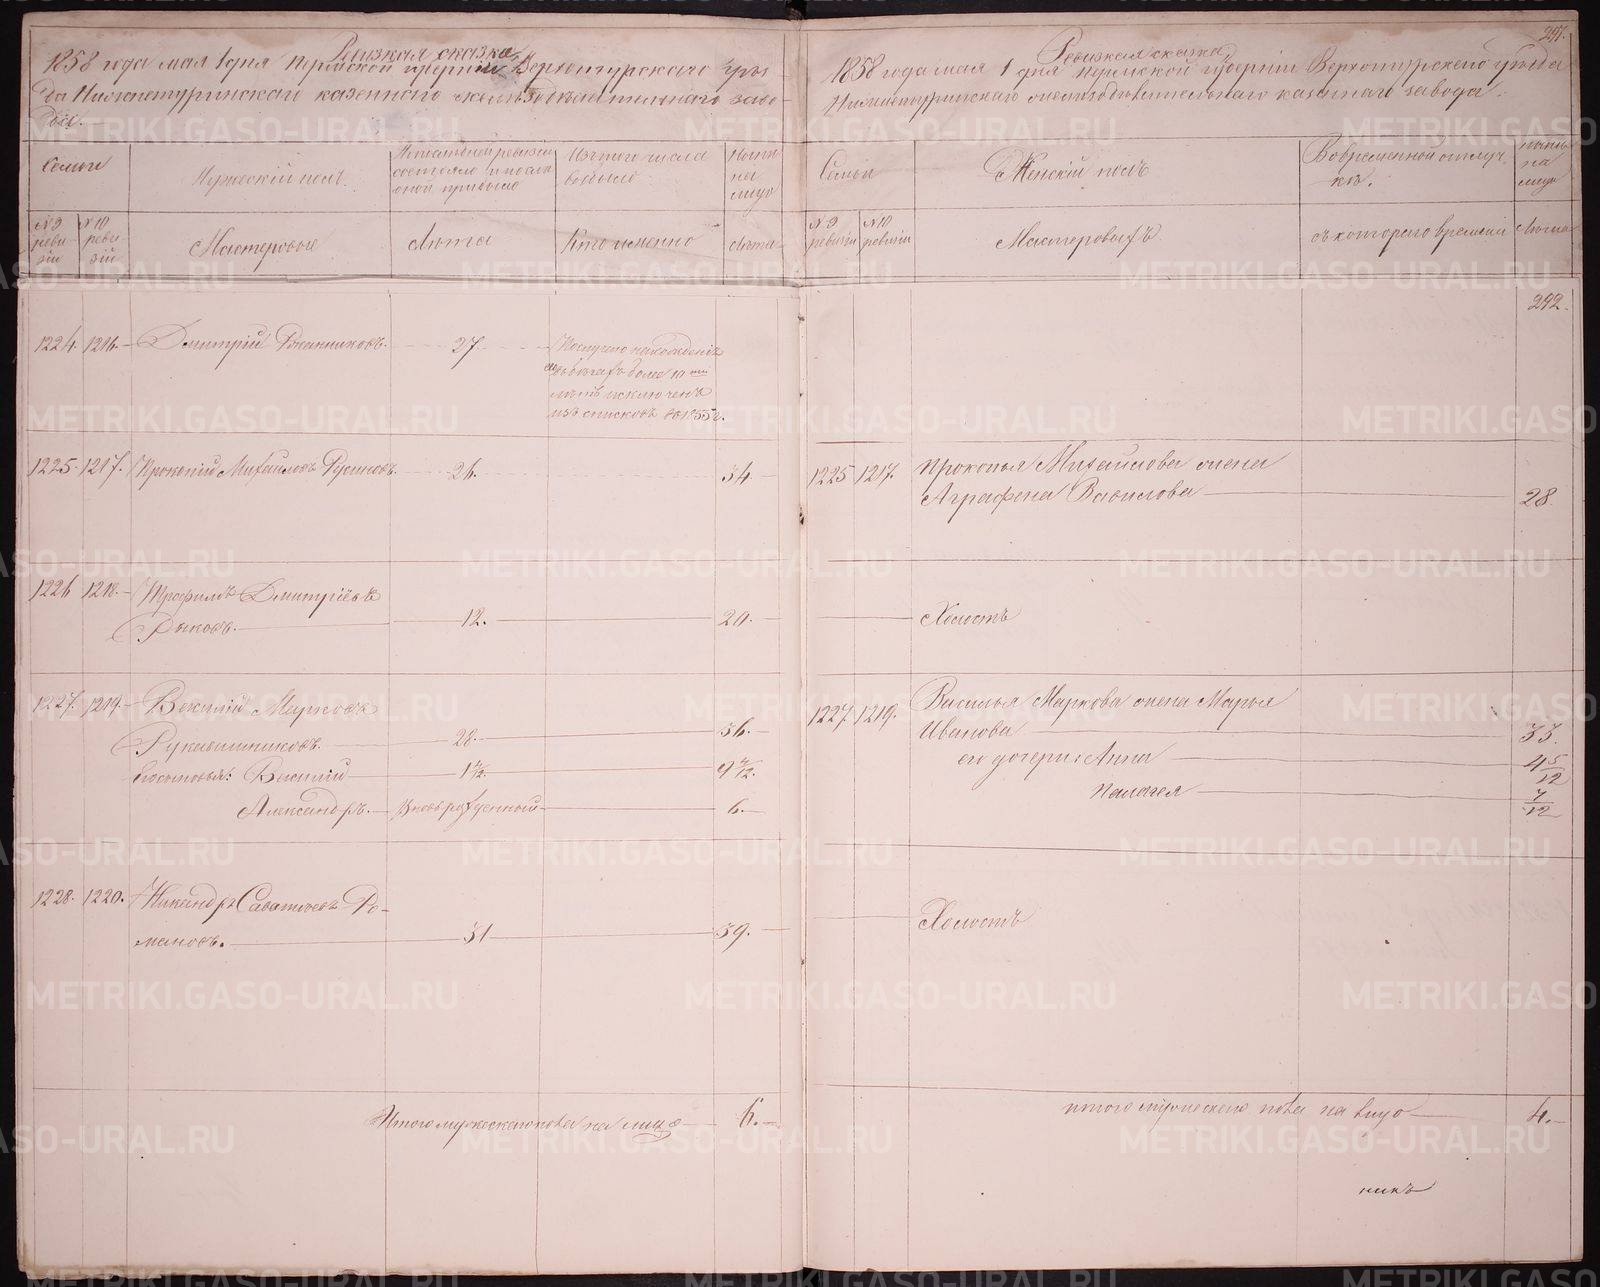 Ревизкая сказка
1858 года мая 1 дня Пермской губернии Верхотурскаго уѣз
да Нижнетуринскаго казеннаго железодѣлательнаго заво-
да.
Семьи
Мужескій полъ.
По последней ревизіи
состояло и после
оной прибыло
Изъ того числа
выбыло
Ныне
на
лицо
№ 9
реви-
зіи
№ 10
реви-
зіи
Мастеровые
Лѣта
Кто именно
Лѣта
1224. 1216. Дмитрій 27.
более 10 ти
лѣтъ исключенъ
изъ списковъ
1225. 1217. Прокопій Михайловъ Русиновъ. 26. 34.
1226 1218. Трофимъ Дмитріевъ
Рыковъ. 12. 20.
1227. 1219. Василій Марковъ
Рукавишниковъ. 28. 36.
Его сыновья: Василій 1 7/12. 9 7/12.
Александръ. Вновьрожденный 6.
1228. 1220. Никандръ Саватѣевъ Ро-
мановъ. 31 39.
Итого мужескаго пола на лицо 6.
291.
Ревизкая сказка
1858 года мая 1 дня Пермской губерніи Верхотурскаго уѣзда
Нижнетуринскаго железодѣлательнаго казеннаго завода.
Семьи
Женскій полъ
Во временной отлуч
кѣ.
ныне
на
лицо
№ 9
ревизіи
№ 10
ревизіи
Мастеровыхъ
съ котораго времени
Лѣта
292.
1225 1217. Прокопья Михайлова жена
Аграфена Вавилова 28
Холостъ
1227 1219. Василья Маркова жена Марья
Иванова 35.
его дочери: Анна 4 5/12
Палагея 7/12
Холостъ
итого женскаго пола на лицо 4.